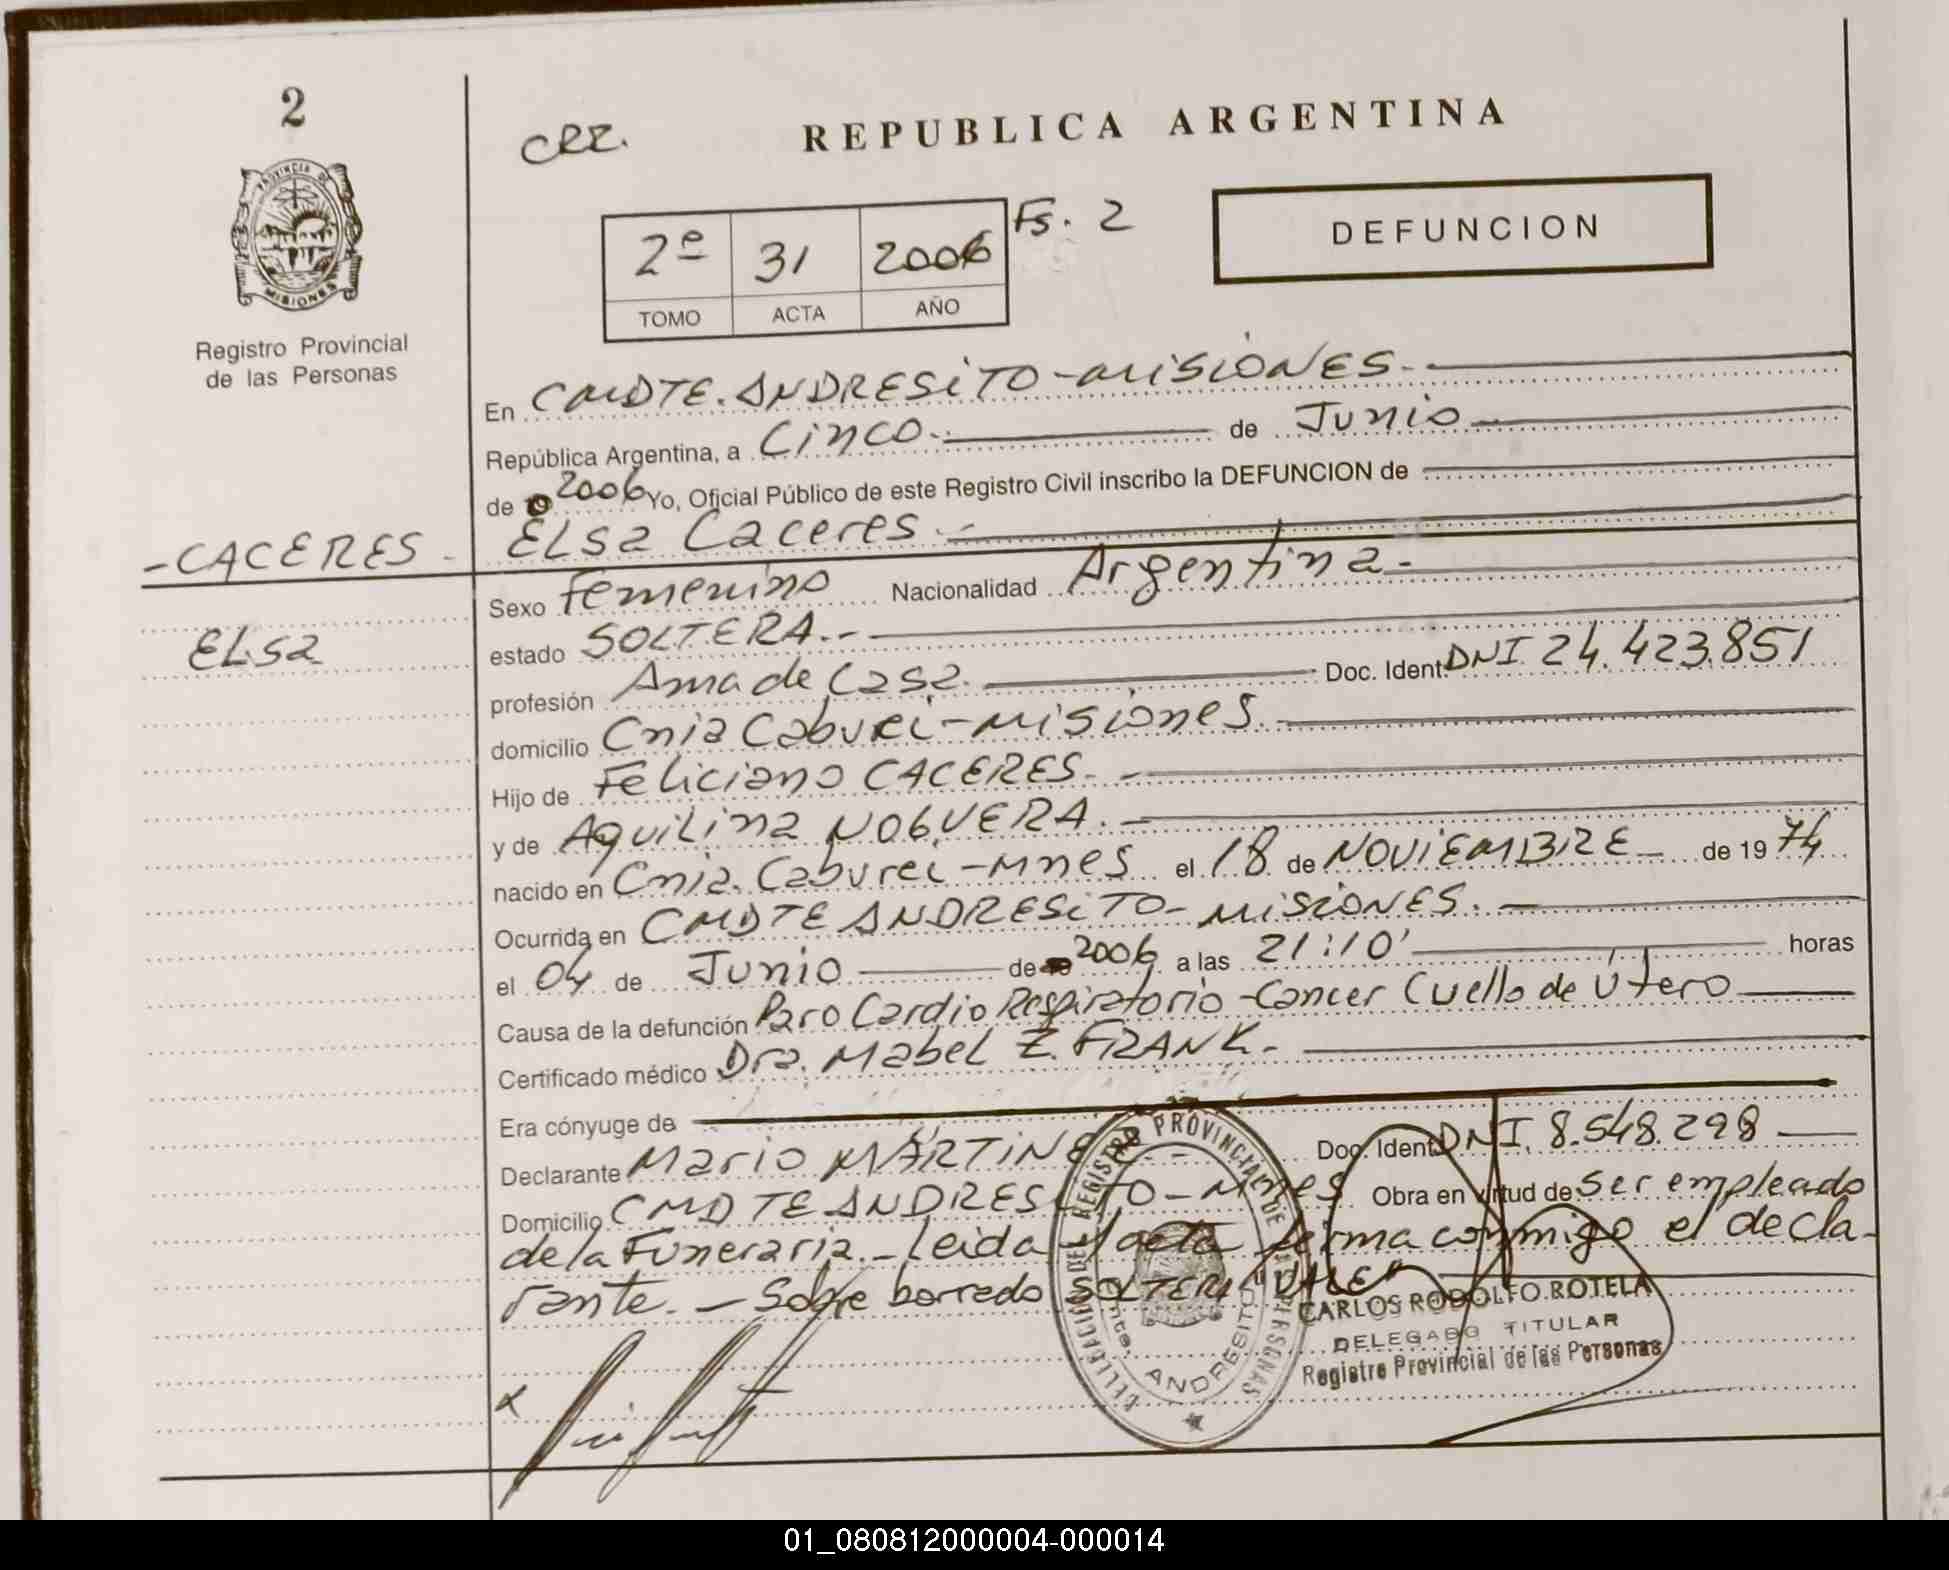 2
cer.
REPUBLICA ARGENTINA
PROVINCIA DE
MISIONES
Registro Provincial
de las Personas
2º 31 2006 Fs. 2
TOMO ACTA AÑO
DEFUNCION
En CMDTE. ANDRESiTO-MiSiONES.-
República Argentina, a Cinco.- de Junio
de 2006 Yo, Oficial Público de este Registro Civil inscribo la DEFUNCION de
-CACERES- ELsa Caceres.-
Sexo Femenino Nacionalidad Argentina-
ELsa
estado SOLTERA.-
profesión Ama de Casa. Doc. Ident. DNI 24.423.851
domicilio Cnia Caburei-Misiones.-
Hijo de Feliciano CACERES.-
y de AquiLina NOGUERA.-
nacido en Cnia. Caburei-Mnes el 18 de NOViEMBRE de 1974
Ocurrida en CMDTE ANDRESiTO-MiSiONES.-
el 04 de Junio de 2006 a las 21:10' horas
Causa de la defunción Paro Cardio Respiratorio-Cancer Cuello de Útero
Certificado médico Dra. Mabel Z. FRANK.-
Era cónyuge de
Declarante Mario MARTiNEZ.- Doc. Ident DNI. 8.548.298
Domicilio CMDTE ANDRESiTO-Mnes Obra en virtud de ser empleado
de la Funeraria.-Leida el acta firma conmigo el decla-
rante.-Sobre borrado SOLTERA "VALE"
DELEGACION DEL REGISTRO PROVINCIAL DE LAS PERSONAS
Cmte. ANDRESITO
CARLOS RODOLFO ROTELA
DELEGADO TITULAR
Registro Provincial de las Personas
x
01_080812000004-000014